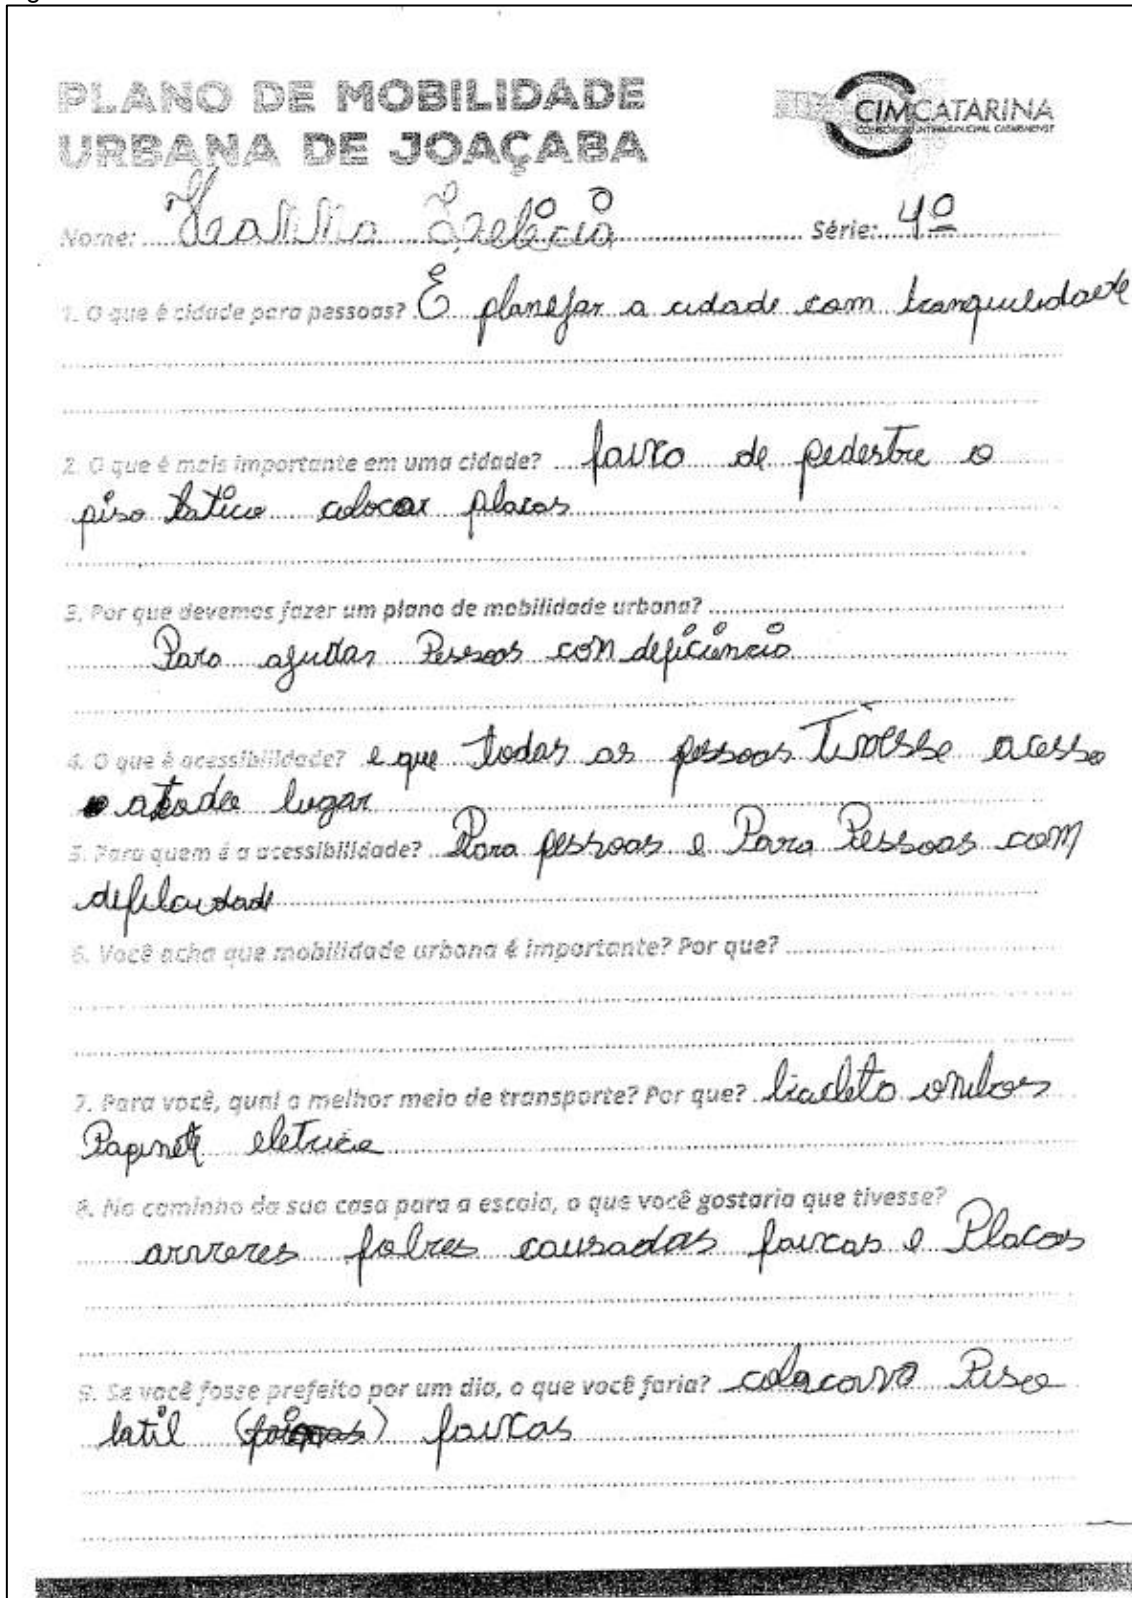 PLANO DE MOBILIDADE
URBANA DE JOAÇABA
CIMCATARINA
CONSÓRCIO INTERMUNICIPAL CATARINENSE
Nome: Série: 4º
1. O que é cidade para pessoas? É planejar a cidade com tranquilidade
2. O que é mais importante em uma cidade? faixa de pedestre o
piso tatico colocar placas
3. Por que devemos fazer um plano de mobilidade urbana?
Para ajudar Pessoas com deficiência
4. O que é acessibilidade? e que todas as pessoas tivesse acesso
a todo lugar
5. Para quem é a acessibilidade? Para pessoas e Para Pessoas com
6. Você acha que mobilidade urbana é importante? Por que?
7. Para você, qual o melhor meio de transporte? Por que? bicicleta onibos
Papinete eletrice
8. No caminho da sua casa para a escola, o que você gostaria que tivesse?
arvreres causadas faixas e Placas
9. Se você fosse prefeito por um dia, o que você faria? colocarva Piso
tatil faixas